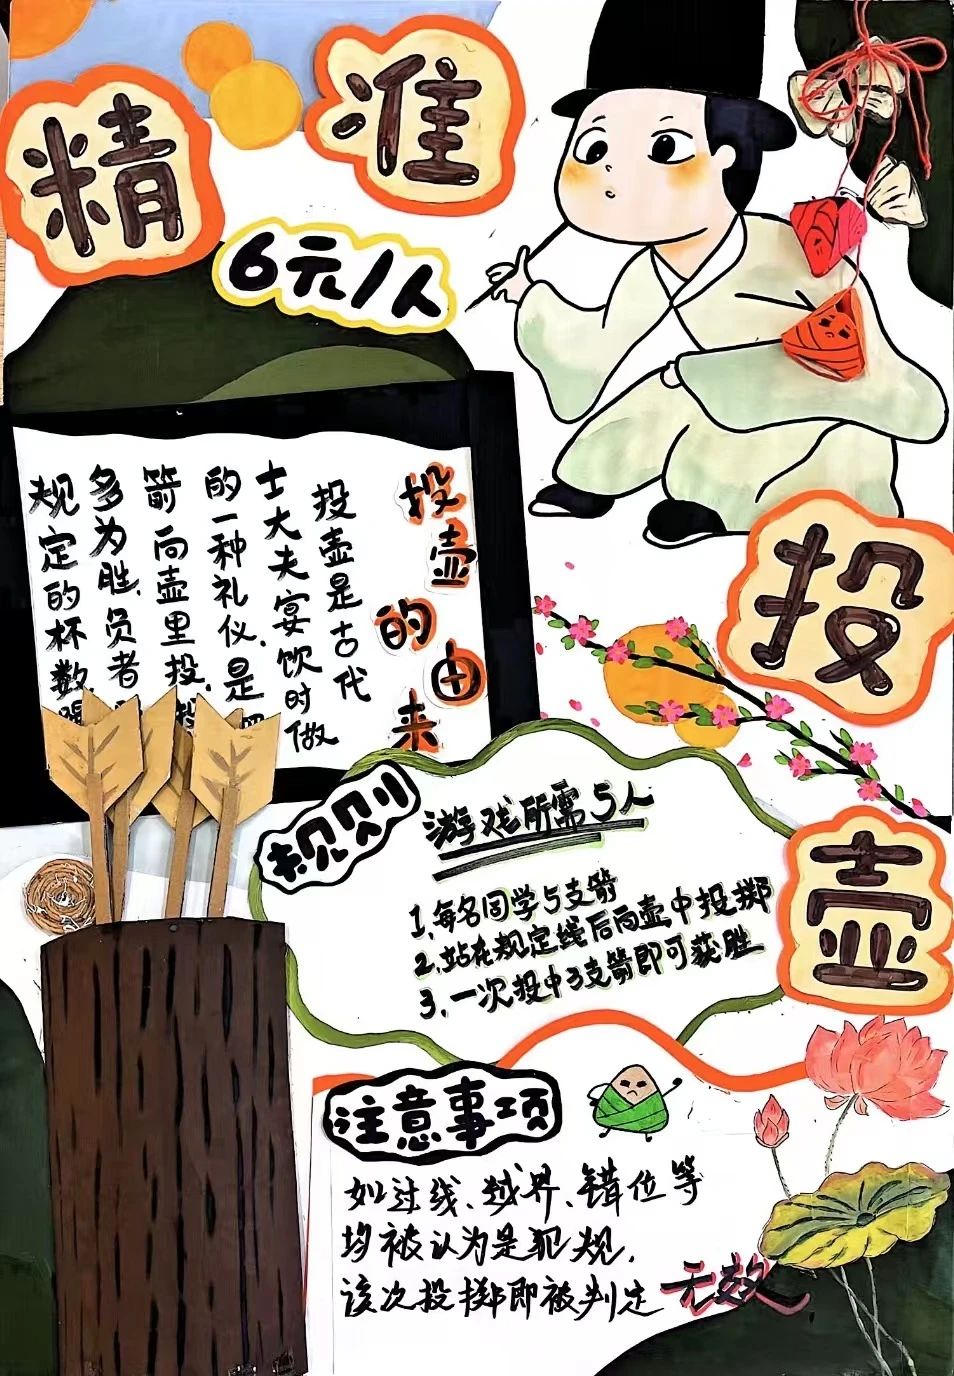 精准
6元/人
投壶的由来
投壶是古代
士大夫宴饮时做
的一种礼仪.是
箭向壶里投.投
多为胜.负者
规定的杯数.
投壶
规则
游戏所需5人
1.每名同学5支箭
2.站在规定线后向壶中投掷
3.一次投中3支箭即可获胜
注意事项
如过线、越界、错位等
均被认为是犯规.
该次投掷即被判定无效